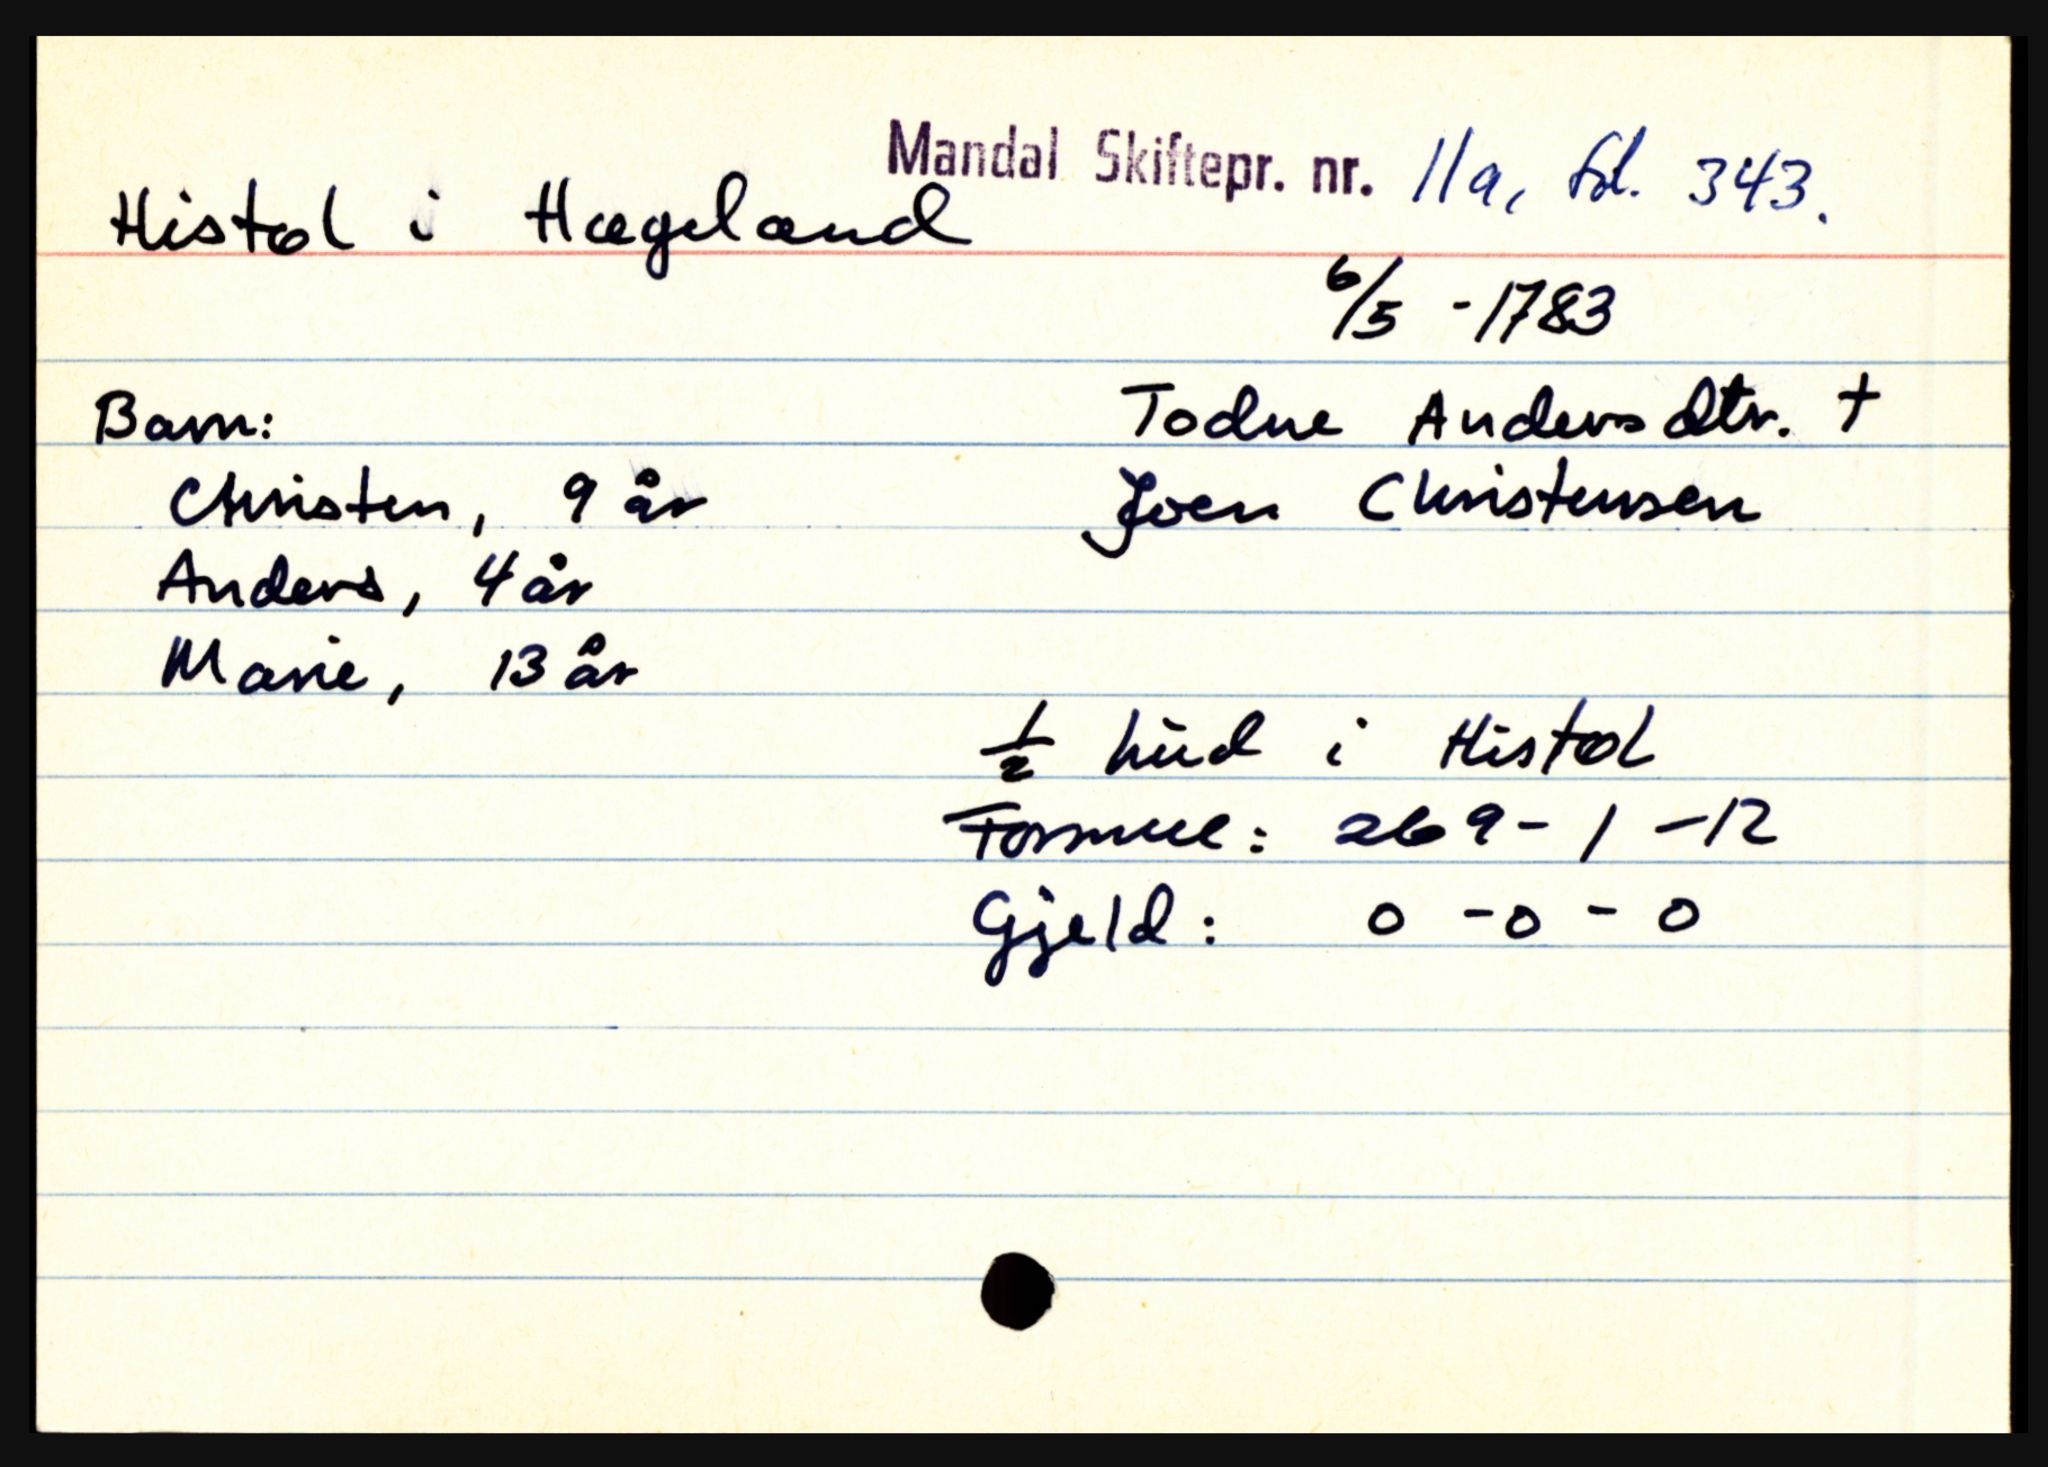 Mandal Skiftepr. nr. 11a, fol. 343.
Histøl i Hægeland
6/5 - 1783
Barn:
Todne Andersdtr. †
Christen, 9 år
Joen Christensen
Anders, 4 år
Marie, 13 år
1/2 hud i Histøl
Formue: 269 - 1 - 12
Gjeld: 0 - 0 - 0